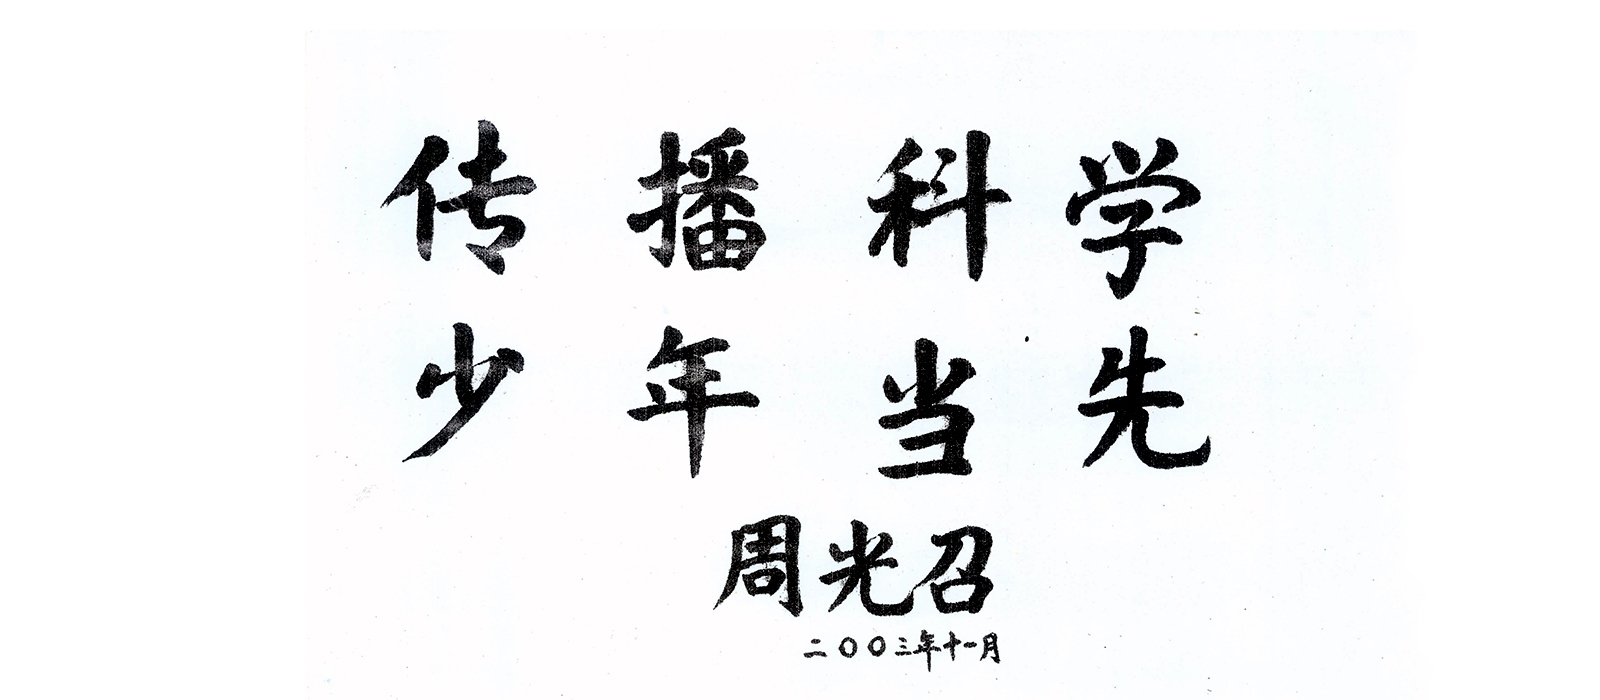 传播科学
少年当先
周光召
二〇〇三年十一月